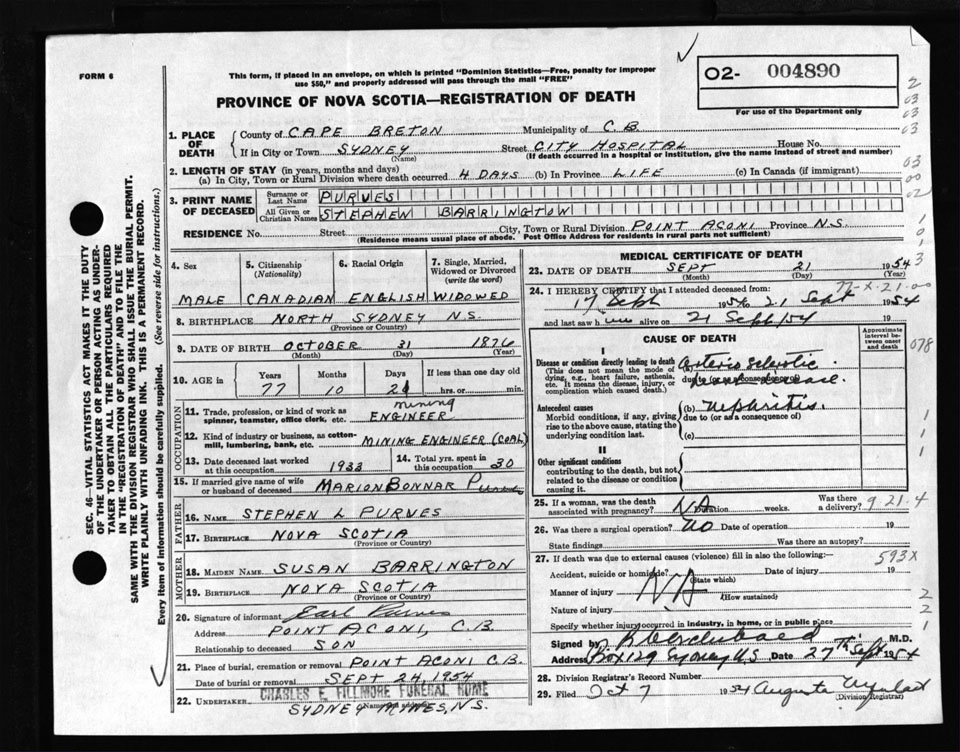 FORM 6
This form, if placed in an envelope, on which is printed "Dominion Statistics—Free, penalty for improper
use $50," and properly addressed will pass through the mail "FREE"
PROVINCE OF NOVA SCOTIA—REGISTRATION OF DEATH
02- 004890
For use of the Department only
1. PLACE OF DEATH
County of CAPE BRETON Municipality of C.B.
If in City or Town SYDNEY Street CITY HOSPITAL House No.
(Name) (If death occurred in a hospital or institution, give the name instead of street and number)
2. LENGTH OF STAY (in years, months and days)
(a) In City, Town or Rural Division where death occurred 4 DAYS (b) In Province LIFE (c) In Canada (if immigrant)
3. PRINT NAME OF DECEASED
Surname or Last Name PURVES
All Given or Christian Names STEPHEN BARRINGTON
RESIDENCE No. Street City, Town or Rural Division POINT ACONI Province N.S.
(Residence means usual place of abode. Post Office Address for residents in rural parts not sufficient)
4. Sex
MALE
5. Citizenship (Nationality)
CANADIAN
6. Racial Origin
ENGLISH
7. Single, Married, Widowed or Divorced (write the word)
WIDOWED
8. BIRTHPLACE NORTH SYDNEY N.S.
(Province or Country)
9. DATE OF BIRTH OCTOBER 31 1876
(Month) (Day) (Year)
10. AGE in Years Months Days If less than one day old
77 10 21 hrs. or min.
OCCUPATION
11. Trade, profession, or kind of work as spinner, teamster, office clerk, etc. mining ENGINEER
12. Kind of industry or business, as cotton-mill, lumbering, bank, etc. MINING ENGINEER (COAL)
13. Date deceased last worked at this occupation 1933
14. Total yrs. spent in this occupation 30
15. If married give name of wife or husband of deceased MARION BONNAR Purves
FATHER
16. NAME STEPHEN L PURVES
17. BIRTHPLACE NOVA SCOTIA
(Province or Country)
MOTHER
18. MAIDEN NAME SUSAN BARRINGTON
19. BIRTHPLACE NOVA SCOTIA
(Province or Country)
20. Signature of informant Earl Purves
Address POINT ACONI, C.B.
Relationship to deceased SON
21. Place of burial, cremation or removal POINT ACONI C.B.
Date of burial or removal SEPT 24, 1954
22. UNDERTAKER CHARLES E. FILLMORE FUNERAL HOME
(Name and address)
SYDNEY MINES, N.S.
MEDICAL CERTIFICATE OF DEATH
23. DATE OF DEATH SEPT 21 1954
(Month) (Day) (Year)
24. I HEREBY CERTIFY that I attended deceased from:
17 Sept 1954 to 21 Sept 1954
and last saw him alive on 21 Sept/54 19
77-X-21-00
CAUSE OF DEATH
Approximate interval between onset and death
I
Disease or condition directly leading to death
(This does not mean the mode of dying, e.g., heart failure, asthenia, etc. It means the disease, injury, or complication which caused death.)
(a) Arterio sclerotic
due to (or as a consequence of)
disease.
Antecedent causes
Morbid conditions, if any, giving rise to the above cause, stating the underlying condition last.
(b) Nephritis.
due to (or as a consequence of)
(c)
II
Other significant conditions
contributing to the death, but not related to the disease or condition causing it.
25. If a woman, was the death associated with pregnancy? NA Duration weeks. Was there a delivery?
9 21-4
26. Was there a surgical operation? No Date of operation
State findings Was there an autopsy?
27. If death was due to external causes (violence) fill in also the following:—
593X
Accident, suicide or homicide? Date of injury 19
(State which)
Manner of injury NA (How sustained)
Nature of injury
Specify whether injury occurred in industry, in home, or in public place
Signed by M.D.
Address Box 129 Sydney N.S. Date 27th Sept 1954
28. Division Registrar's Record Number
29. Filed Oct 7 1954 Augusta
(Division Registrar)
2
03
03
03
03
00
02
1
0
1
3
078
1
1
1
2
2
1
SEC. 46—VITAL STATISTICS ACT MAKES IT THE DUTY
OF THE UNDERTAKER OR PERSON ACTING AS UNDER-
TAKER TO OBTAIN ALL THE PARTICULARS REQUIRED
IN THE "REGISTRATION OF DEATH" AND TO FILE THE
SAME WITH THE DIVISION REGISTRAR WHO SHALL ISSUE THE BURIAL PERMIT.
WRITE PLAINLY WITH UNFADING INK. THIS IS A PERMANENT RECORD.
Every item of information should be carefully supplied. (See reverse side for instructions.)